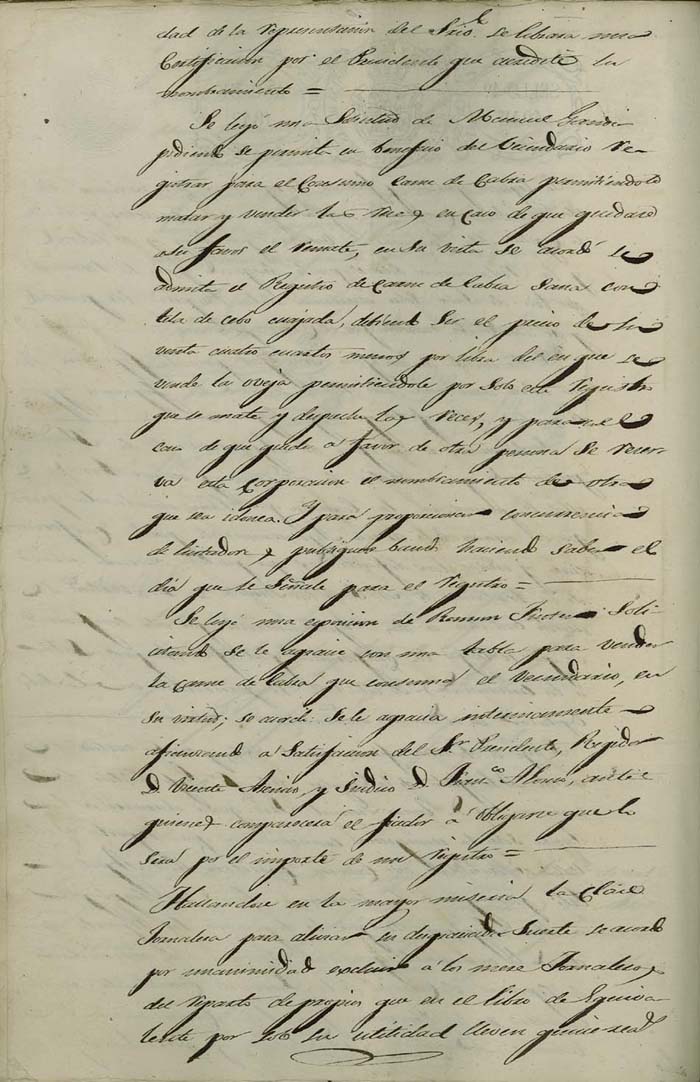 dad de la representacion del Srio. se librará una
Certificacion por el Presidente que acredite su
nombramiento =
Se leyó una Solicitud de Manuel
pidiendo se permita en beneficio del Vecindario re-
gistrar para el Consumo Carne de Cabra permitiendole
matar y vender las res, y en caso de que quedare
a su favor el remate, en su vista se acordó se
admita el Registro de Carne de Cabra Sana con
tela de cebo cuajada, debiendo Ser el precio de su
venta cuatro cuartos menos por libra del en que se
vende la oveja permitiendole por Solo este registro
que se mate y despache las reses, y para en el
caso de que quede a favor de otra persona se reser-
va esta Corporacion el nombramiento de otra
que sea idonea. Y para proporcionar concurrencia
de licitadores, publiquese bando haciendo saber el
dia que se Señale para el registro =
Se leyó una exposicion de Ramon Soli-
citando Se le agracie con una tabla para vender
la Carne de Cabra que consuma el Vecindario, en
Su virtud; se acordó: Se le agracia interinamente
afianzando a Satisfacion del Sr. Presidente, Regidor
D. Vicente y Sindico D. Franco. Alonso, ante
quienes comparecerá el fiador a obligarse que lo
será por el importe de un registro =
Hallandose en la mayor miseria la Clase
Jornalera para aliviar su desgraciada Suerte se acordó
por unanimidad excluir a los meros Jornaleros,
del reparto de propios que en el libro de Equiva-
lente por solo su utilidad lleven quince reales